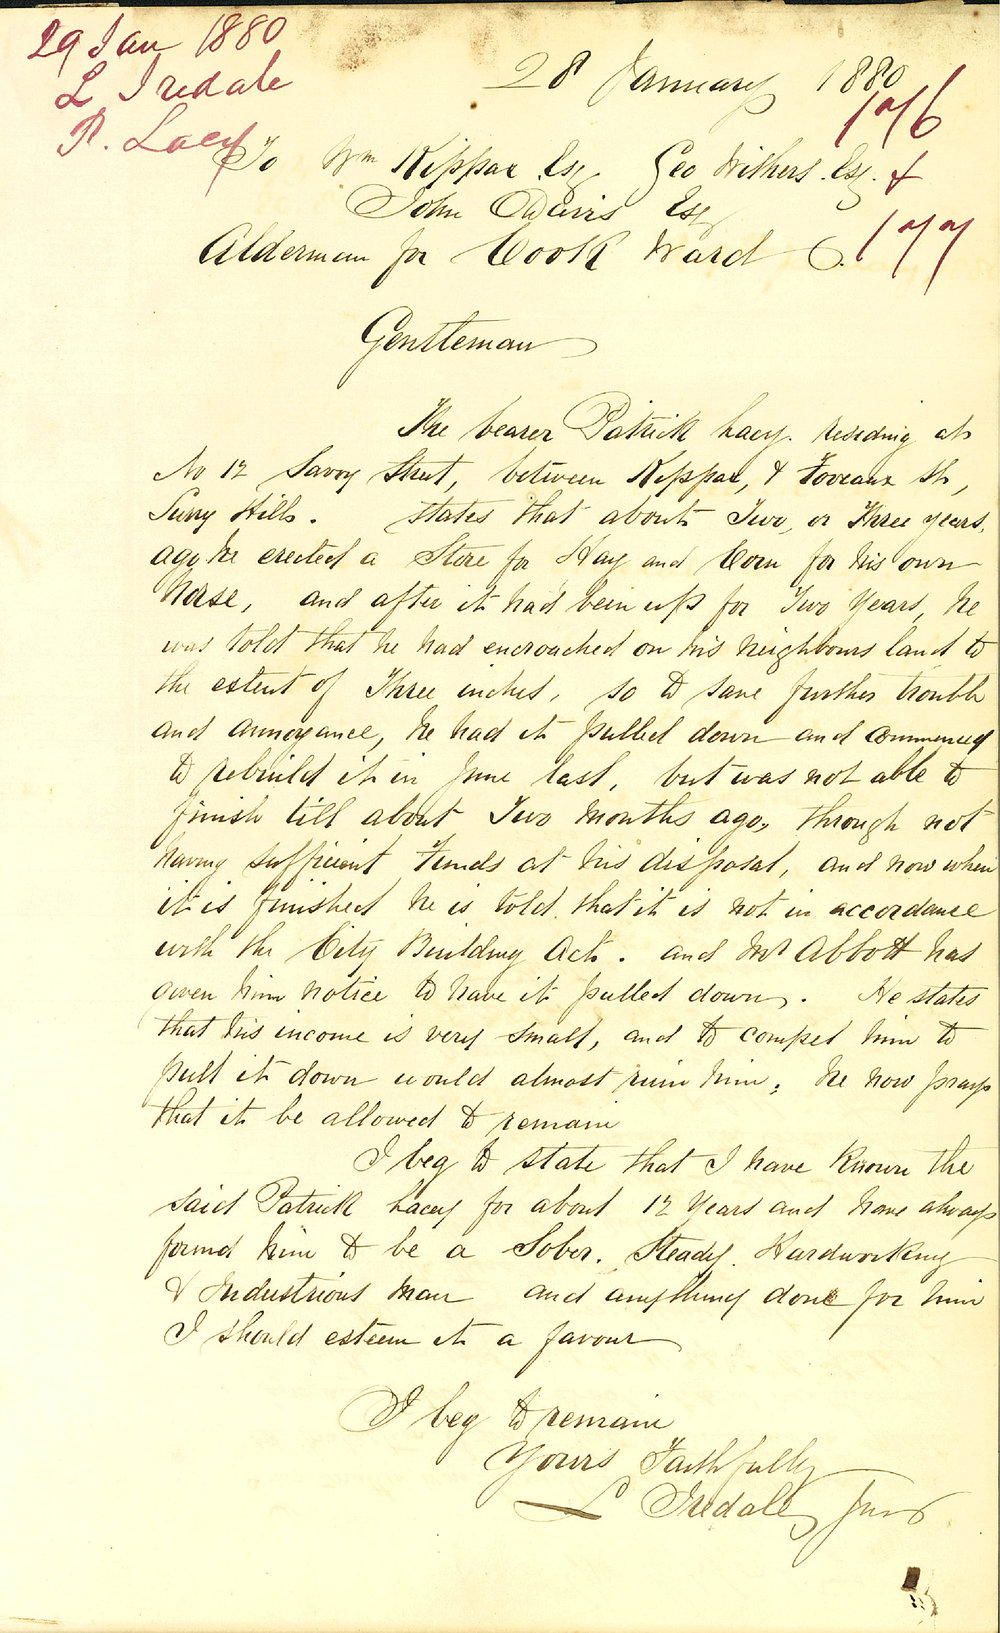 29 Jan 1880
L Iredale
P. Lacey
28 January 1880
176
&
177
To Wm Kippax Esq Geo Withers Esq. &
John Davis Esq
Alderman for Cook Ward
Gentleman
The bearer Patrick Lacey. residing at
No 12 Savoy Street, between Kippax, & Foveaux St,
Surry Hills. States that about Two, or Three years,
ago, he erected a Store for Hay and Corn for his own
Horse, and after it had been up for Two Years, he
was told that he had encroached on his neighbours land to
the extent of Three inches, so to save further trouble
and annoyance, he had it pulled down and commenced
to rebuild it in June last, but was not able to
finish till about Two months ago, through not
having sufficient funds at his disposal, and now when
it is finished he is told that it is not in accordance
with the City Building Act. and Mr Abbott has
given him notice to have it pulled down. He states
that his income is very small, and to compel him to
pull it down would almost ruin him, he now prays
that it be allowed to remain
I beg to state that I have known the
said Patrick Lacey for about 12 Years and have always
found him to be a Sober. Steady. Hardworking
& Industrious man and anything done for him
I should esteem it a favour
I beg to remain
Yours Faithfully
L Iredale Junr